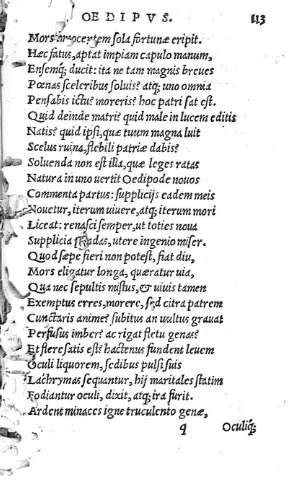 OEDIPVS. 113
Mors innocentem sola fortunæ eripit.
Hæc fatus, aptat impiam capulo manum,
Ensemq; ducit: ita ne tam magnis breues
Pœnas sceleribus soluis? atq; uno omnia
Pensabis ictu? moreris? hoc patri sat est.
Quid deinde matri? quid male in lucem editis
Natis? quid ipsi, quæ tuum magna luit
Scelus ruina, flebili patriæ dabis?
Soluenda non est illa, quæ leges ratas
Natura in uno uertit Oedipode nouos
Commenta partus: supplicijs eadem meis
Nouetur, iterum uiuere, atq; iterum mori
Liceat: renasci semper, ut toties noua
Supplicia utere ingenio miser.
Quod sæpe fieri non potest, fiat diu,
Mors eligatur longa, quæratur uia,
Qua nec sepultis mistus, & uiuis tamen
Exemptus erres, morere, sed citra patrem
Cunctaris anime? subitus an uultus grauat
Perfusus imber? ac rigat fletu genas?
Et flere satis est? hactenus fundent leuem
Oculi liquorem, sedibus pulsi suis
Lachrymas sequantur, hij maritales statim
Fodiantur oculi, dixit, atq; ira furit.
Ardent minaces igne truculento genæ,
q Oculiq;